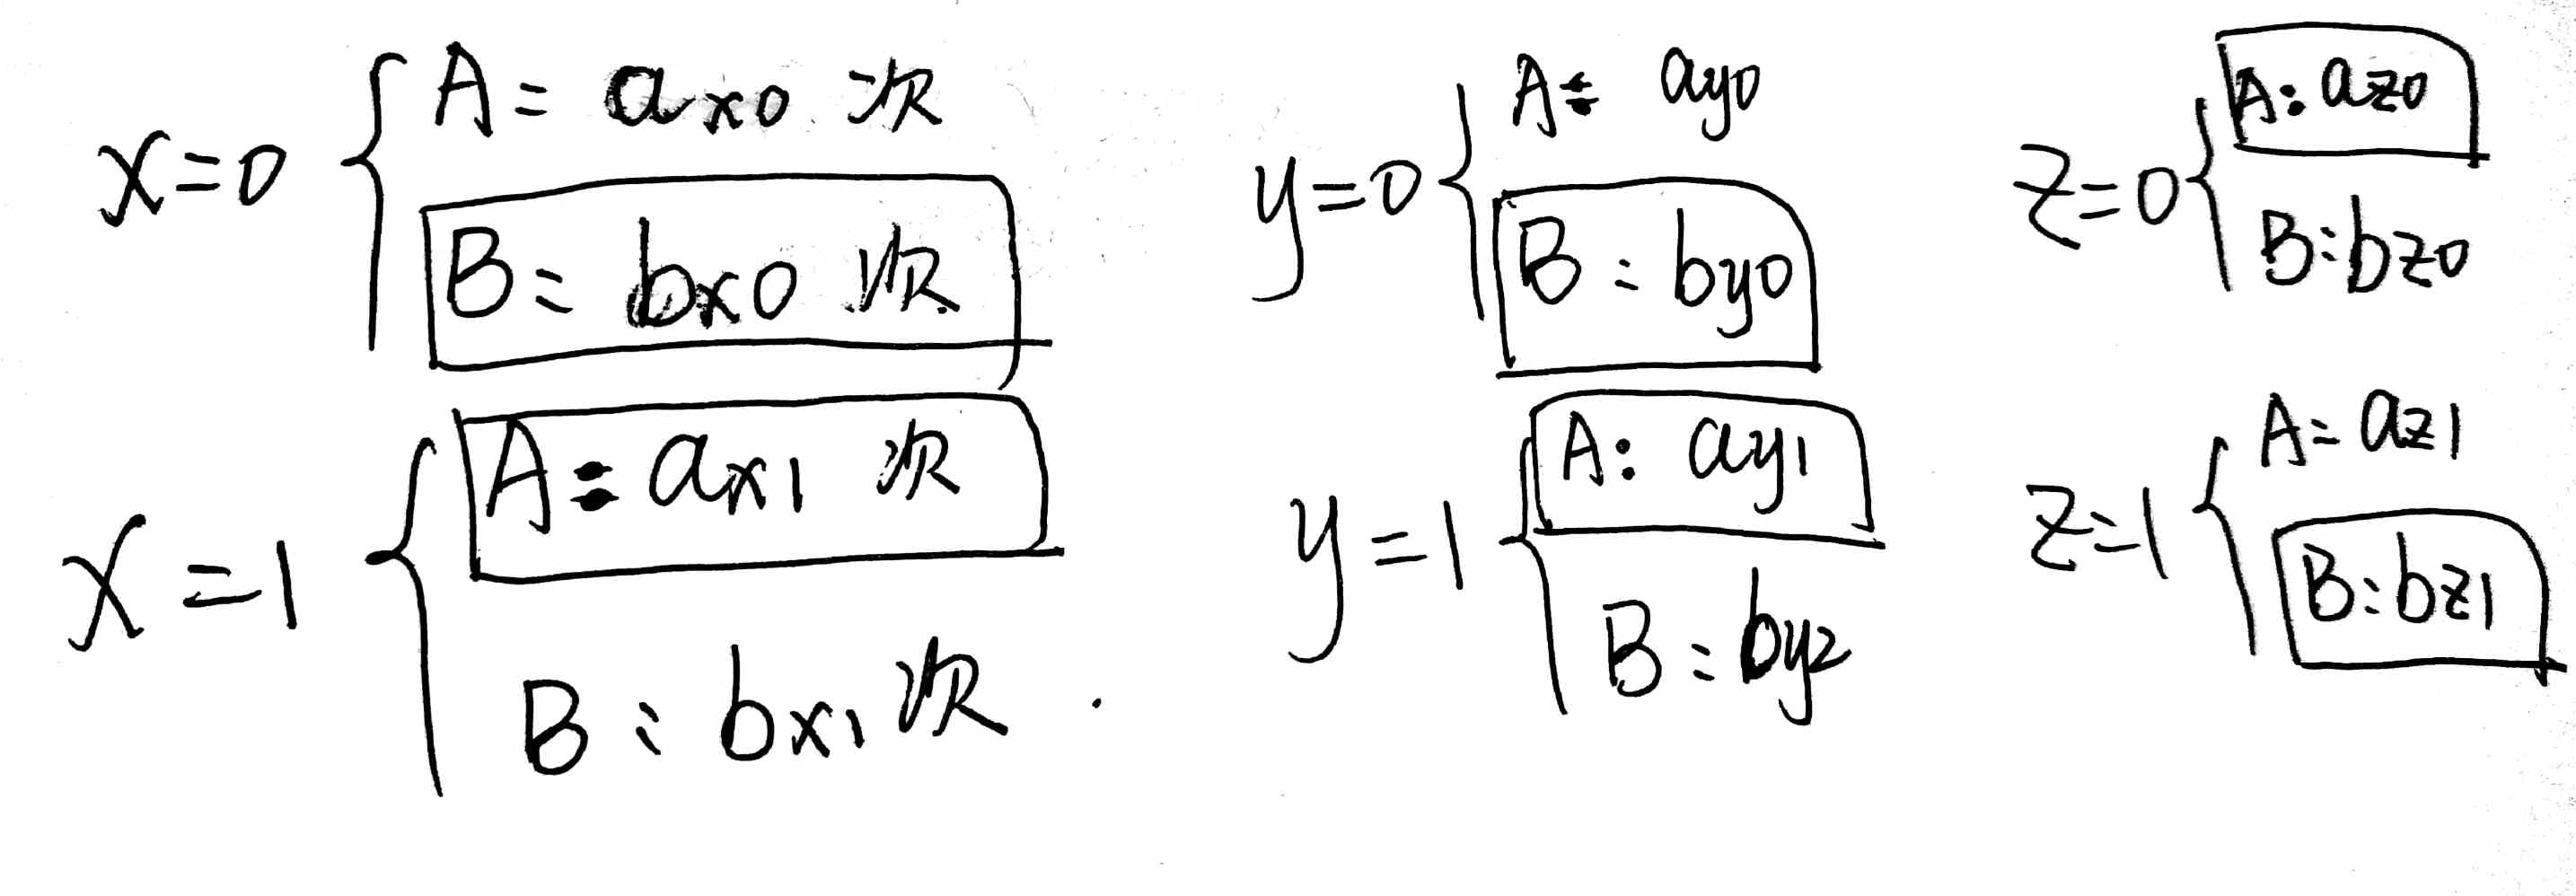 x=0
A: ax0 次
B: bx0 次
x=1
A: ax1 次
B: bx1 次
y=0
A: ay0
B: by0
y=1
A: ay1
B: by2
z=0
A: az0
B: bz0
z=1
A: az1
B: bz1